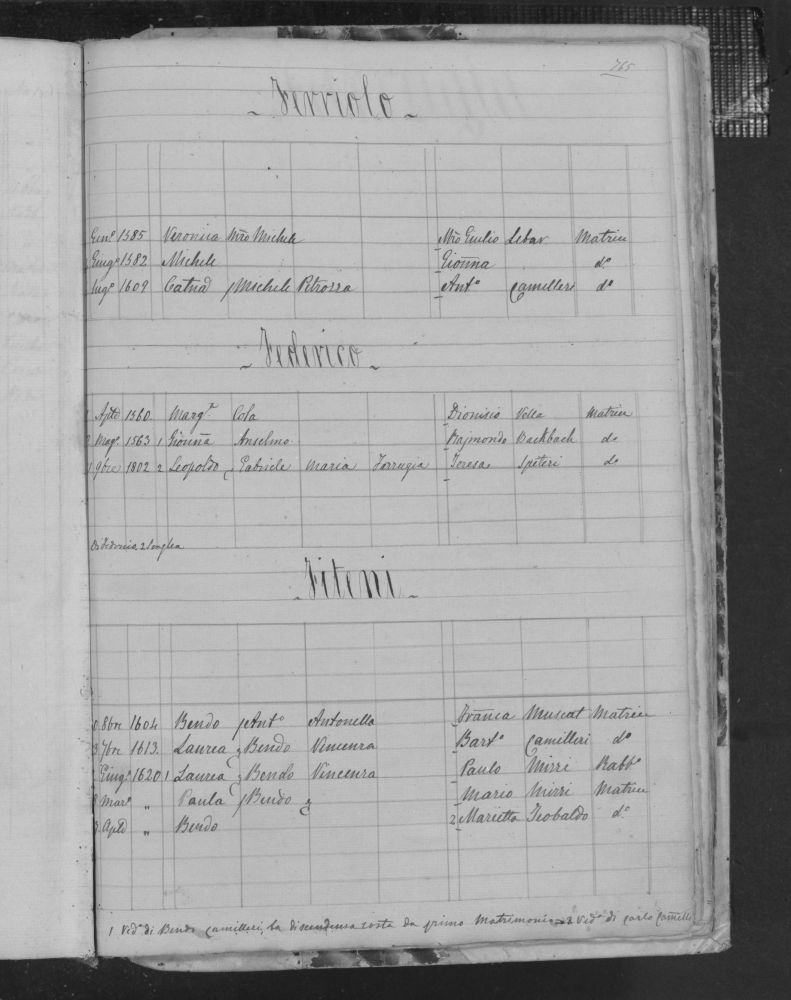 765
- Ferriolo -
Genº 1585 Veronica Mro Michele Mro Giulio Lebar Matrice
Giugº 1582 Michele Gionna dº
1609 Catnà Michele Petrozza Antº Camilleri dº
- Federico -
Aple 1560 Margta Cola Dionisio Vella Matrice
Magº 1563 1 Gionna Anselmo Raymondo Backbach do
9bre 1802 2 Leopoldo Gabriele Maria Farrugia Teresa Spiteri do
2 Senglea
- Fiteni -
8bre 1604 Bendo Antº Antonella Franca Muscat Matrice
7bre 1613 Laurea Bendo Vincenza Bartº Camilleri dº
Giugº 1620 1 Laurea Bendo Vincenza Paulo Mirri Rabbº
Marº " Paula Bendo Mario Mirri Matrice
Aple " Bendo 2 Marietta Teobaldo dº
1 Vedª di Bendo Camilleri, la discendenza costa da primo Matrimonio 2 Vedª di Carlo Camilleri